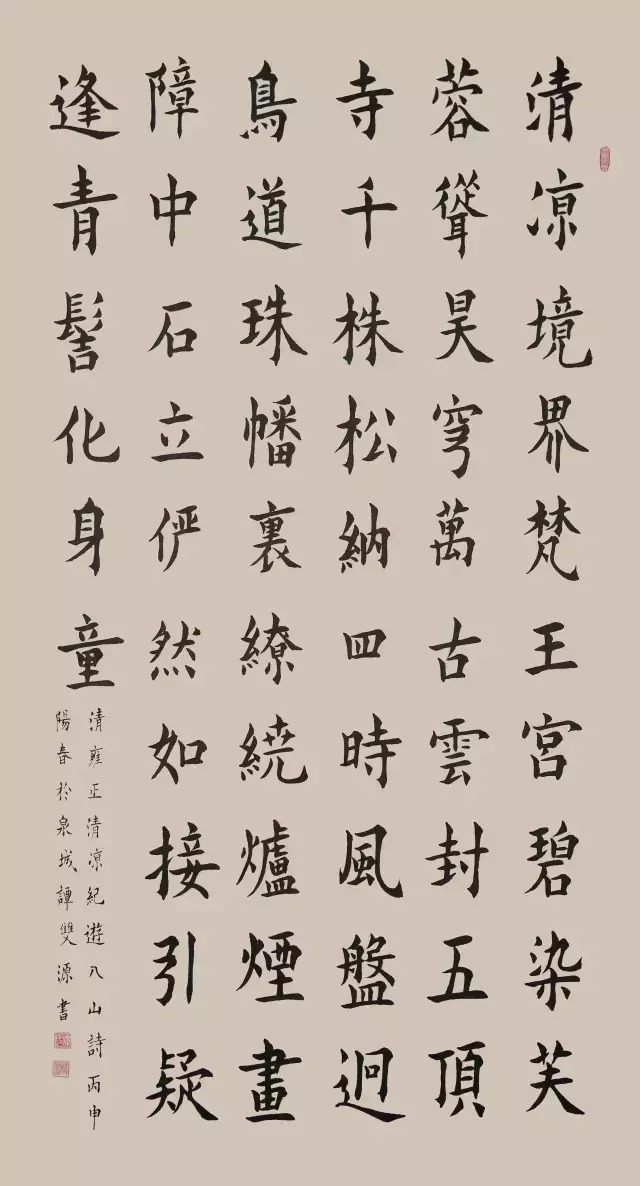 清凉境界梵王宮碧染芙
蓉聳昊穹萬古雲封五頂
寺千株松納四時風盤迴
鳥道珠幡裏繚繞爐煙畫
障中石立俨然如接引疑
逢青髻化身童
清雍正清凉紀遊入山詩丙申
陽春於泉城譚雙源書